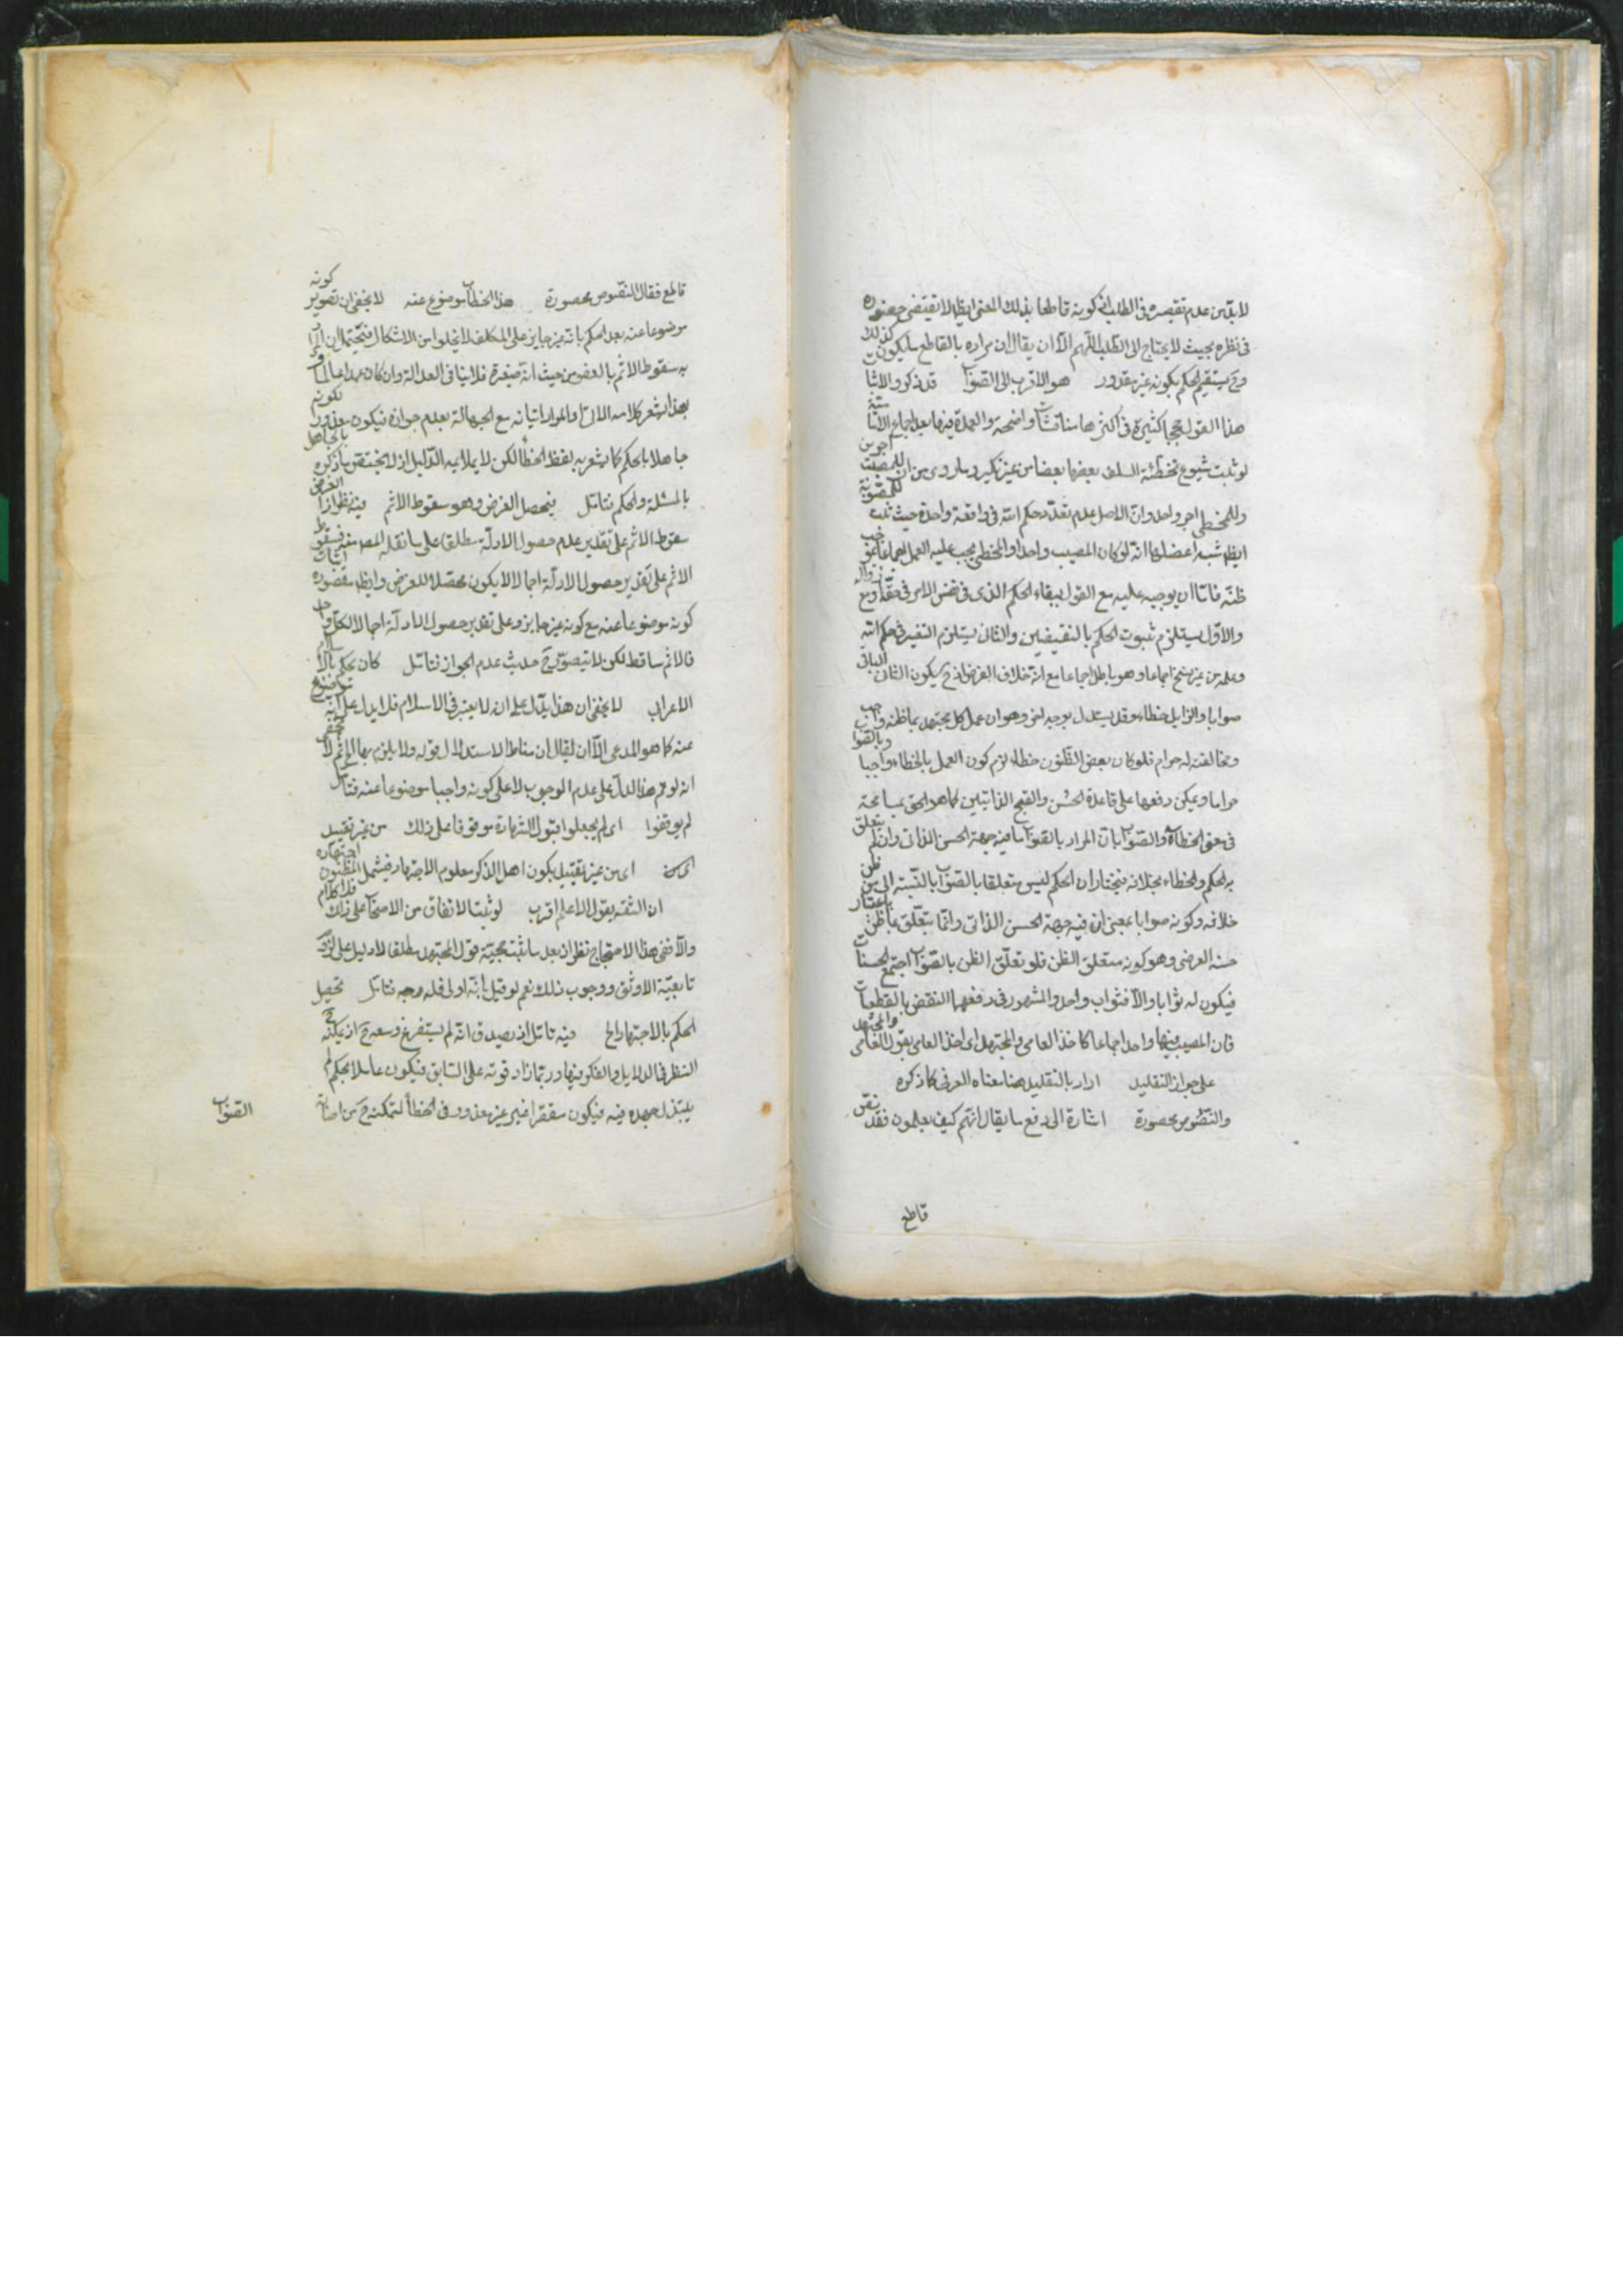 لابد من عدم تقصيره في الطلب اذ كونه قاطعا بذلك المعنى ايظ لا تقتضى حضوره
في نظره بحيث لا يحتاج الى الطلب اللهم الا ان يقال ان مراده بالقاطع ما يكون كذلك
وح يستقيم الحكم بكونه غير مقدور هو الاقرب الى الصواب قد ذكروا لاثبات
هذا القول حججا كثيرة في اكثرها مناقشات واضحة والعمدة فيها بعد اجماع الامامية
لو ثبت شيوع تخطئة السلف بعضها بعضا من غير نكير وما روى من ان للمصيب اجرين
وللمخطى اجر واحد وان الاصل عدم تعدد حكم الله في واقعة واحدة حيث للمصوبة
ايظ شبه اعضلها انه لو كان المصيب واحدا والمخطى يجب عليه العمل اجماعا بموجب
ظنه فاما ان يوجبه عليه مع القول ببقاء الحكم الذى في نفس الامر في حقه او مع زواله
والاول يستلزم ثبوت الحكم بالنقيضين والثانى يستلزم التغير في حكم الله
وعلمه من غير نسخ اجماعا وهو باطل اجماعا مع انه خلاف الفرض اذ ح يكون الثانى الباقى
صوابا والزايل خطاء وقد يستدل بوجه اخر وهو ان عمل كل مجتهد بما ظنه واجب
ومخالفته له حرام فلو كان بعض الظنون خطاء لزم كون العمل بالخطاء واجبا وبالصواب
حراما ويمكن دفعها على قاعدة الحسن والقبح الذاتيين كما هو الحق بمسامحة
في معنى الخطاء والصواب بان المراد بالصواب ما فيه جهة الحسن الذاتى وان لم يتعلق
به الحكم والخطاء بخلافه فنختار ان الحكم ليس متعلقا بالصواب بالنسبة الى من ظن
خلافه وكونه صوابا بمعنى ان فيه جهة الحسن الذاتى وانما يتعلق بما ظن باعتبار
حسنه العرضى وهو كونه متعلق الظن فلو تعلق الظن بالصواب اجتمع الحسنات
فيكون له ثوابا والا فثواب واحد والمشهور في دفعها النقض بالقطعيات
فان المصيب فيها واحد اجماعا كاخذ العامى والمجتهد اى اخذ العامى بقول العامى والمجتهد
على جواز التقليد اراد بالتقليد هنا معناه العرفى كما ذكره
والنصوص محصورة اشارة الى دفع ما يقال انهم كيف يعلمون فقد نص
قاطع
قاطع فقال النصوص محصورة هذا الخطاب موضوع عنه لا يخفى ان تصوير كونه
موضوعا عنه بعد الحكم بانه غير جايز على المكلف لا يخلو من الاشكال فيحتمل ان
به سقوط الاثم بالعفو من حيث انه صغيرة فلا ينافى العدالة وان كان عمدا عالما و
بهذا يشعر كلامه الاتى او المراد اتيانه مع الجهالة بعدم جوازه فيكون معذورا لكونه
جاهلا بالحكم كما يشعر به لفظ الخطأ لكن لا يلايمه الدليل اذ لا يختص ما ذكره بالجاهل
بالمسئلة والحكم فتامل فيحصل الغرض وهو سقوط الاثم فيه نظر اذ الغرض
سقوط الاثم على تقدير عدم حصول الادلة مطلقا على ما نقله المص فسقوط
الاثم على تقدير حصول الادلة اجمالا لا يكون محصلا للغرض وايظ مقصوده اثبات
كونه موضوعا عنه مع كونه غير جايز وعلى تقدير حصول الادلة اجمالا لكل واحد
فالاثم ساقط لكن لا يتصور ح حديث عدم الجواز فتامل كان يحكم باسلام
الاعرابى لا يخفى ان هذا يدل على ان لا يعتبر في الاسلام فلا يدل على انه موضوع
عنه كما هو المدعى الا ان يقال ان مناط الاستدلال قوله ولا يلزم بها الى اخره لا يخفى
انه لو تم هذا لدل على عدم الوجوب لا على كونه واجبا موضوعا عنه فتامل
لم يوقفوا اى لم يجعلوا قبول الشهادة موقوفا على ذلك من غير تقييد
اى من غير تقييد بكون اهل الذكر معلوم الاجتهاد فيشمل المظنون اجتهاده
ان الثقة بقول الاعلم اقرب لو ثبت الاتفاق من الاصحاب على ذلك فلا كلام
والا ففي هذا الاحتجاج نظر اذ بعد ما ثبت حجية قول المجتهد مطلقا لا دليل على لزوم
تابعية الاوثق ووجوب ذلك نعم لو قيل بانه اولى فله وجه فتامل تحصيل
الحكم بالاجتهاد الخ فيه تامل اذ يصدق انه لم يستفرغ وسعه ح اذ يمكنه
النظر في الدلايل والفكر فيها وربما زاد قوته على السابق فيكون عاملا بحكم لم
يبتذل جهده فيه فيكون مقصرا غير معذور في الخطأ لتمكنه ح من اصابة
الصواب